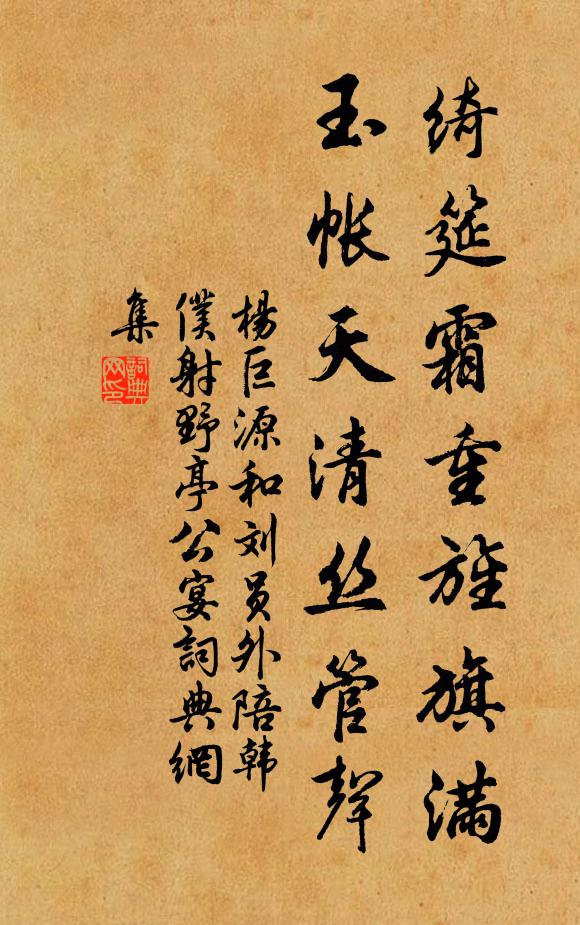 绮筵霜重旌旗满
玉帐天清丝管声
楊巨源和刘员外陪韩
僕射野亭公宴詞典網
集
詞典
网印